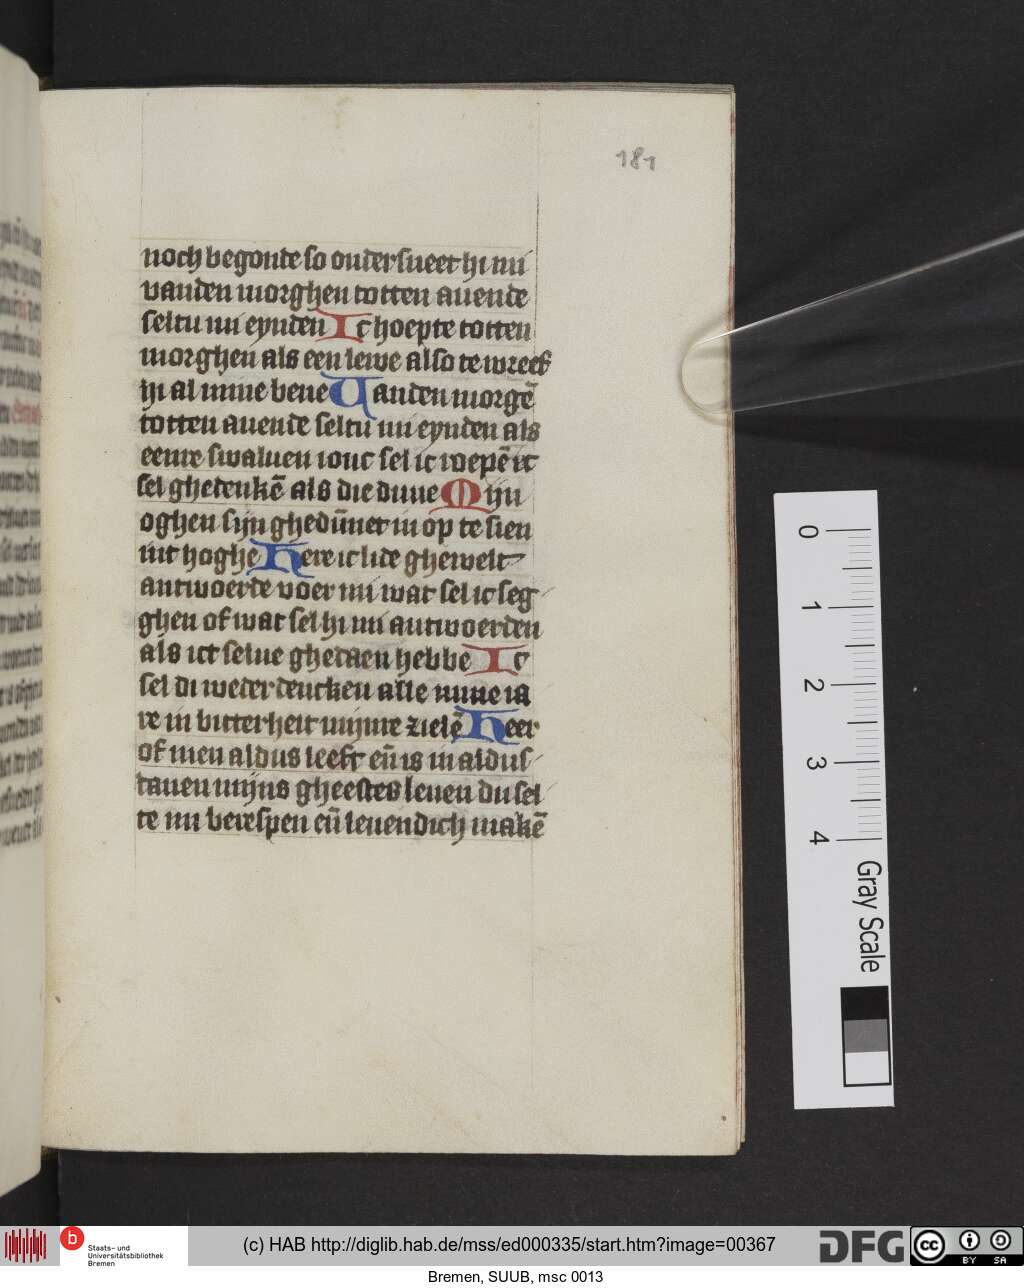 181
noch begonde so ondersneet hi mi
vanden morghen totten auende
seltu mi eynden Ic hoepte totten
morghen als een lewe also te wreef
hi al mine bene Uanden morgē
totten auende seltu mi eynden als
eenre swaluen ionc sel ic roepē ic
sel ghedenkē als die duue Mijn
oghen sijn ghedūnet in op te sien
int hoghe Here ic lide ghewelt
antwoerde voer mi wat sel ic seg
ghen of wat sel hi mi antwoerden
als ict selue ghedaen hebbe Ic
sel di weder dencken alle mine ia
re in bitterheit mijnre zielē Heer
of men aldus leeft eñ is in aldus
tauen mijns gheestes leuen du sel
te mi berespen eñ leuendich makē
0
1
2
3
4
Gray Scale
b
Staats- und
Universitätsbibliothek
Bremen
(c) HAB http://diglib.hab.de/mss/ed000335/start.htm?image=00367
DFG
cc
BY SA
Bremen, SUUB, msc 0013